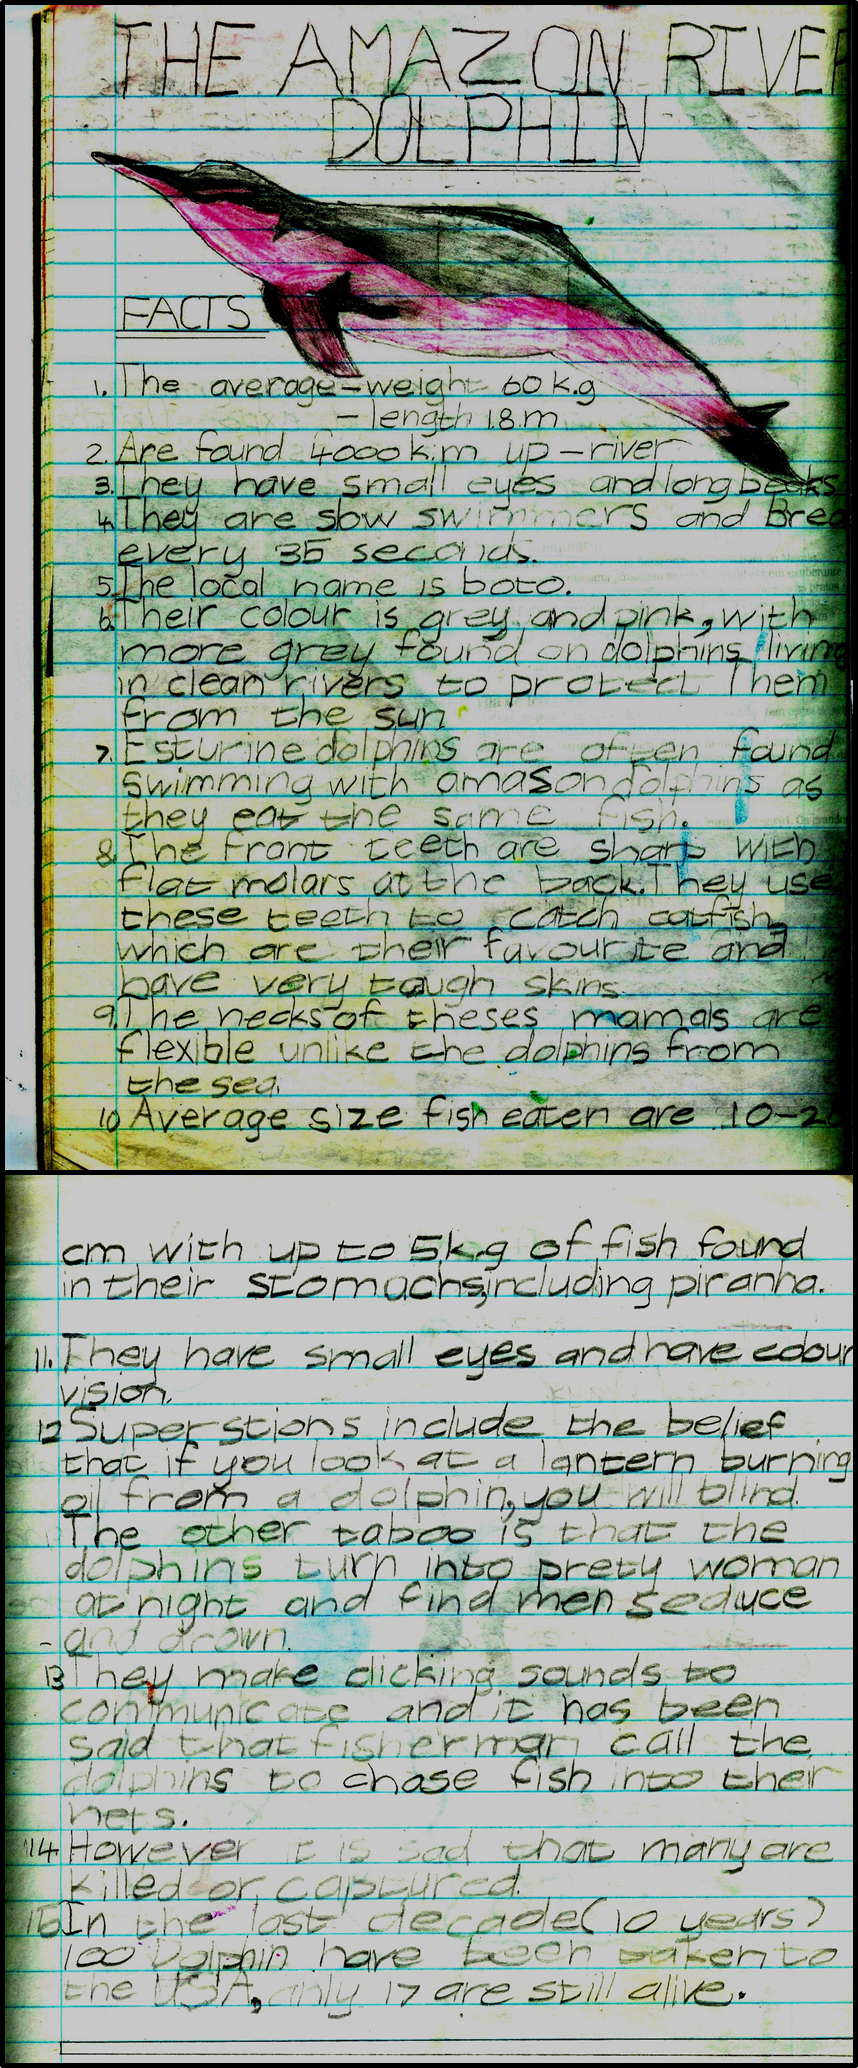 THE AMAZON RIVER
DOLPHIN
FACTS
1. The average-weight 60 k.g
- length 1.8.m
2. Are found 4000 k.m up-river
3. They have small eyes and long beaks
4. They are slow swimmers and Brea
every 35 seconds.
5. The local name is boto.
6. Their colour is grey and pink, with
more grey found on dolphins living
in clean rivers to protect Them
from the sun
7. Esturine dolphins are often found
swimming with amason dolphins as
they eat the same fish.
8. The front teeth are sharp with
flat molars at the back. They use
these teeth to catch catfish,
which are their favourite and
have very tough skins
9. The necks of theses mamals are
flexible unlike the dolphins from
the sea.
10 Average size fish eaten are 10-20
cm with up to 5k.g of fish found
in their stomachs, including piranha.
11. They have small eyes and have colour
vision.
12 Superstions include the belief
that if you look at a lantern burning
oil from a dolphin, you will blind.
The other taboo is that the
dolphins turn into prety woman
at night and find men seduce
- and drown.
13 They make clicking sounds to
communicate and it has been
said that fisherman call the
dolphins to chase fish into their
nets.
14 However it is sad that many are
killed or captured.
15 In the last decade (10 years)
100 Dolphin have been taken to
the USA, only 17 are still alive.